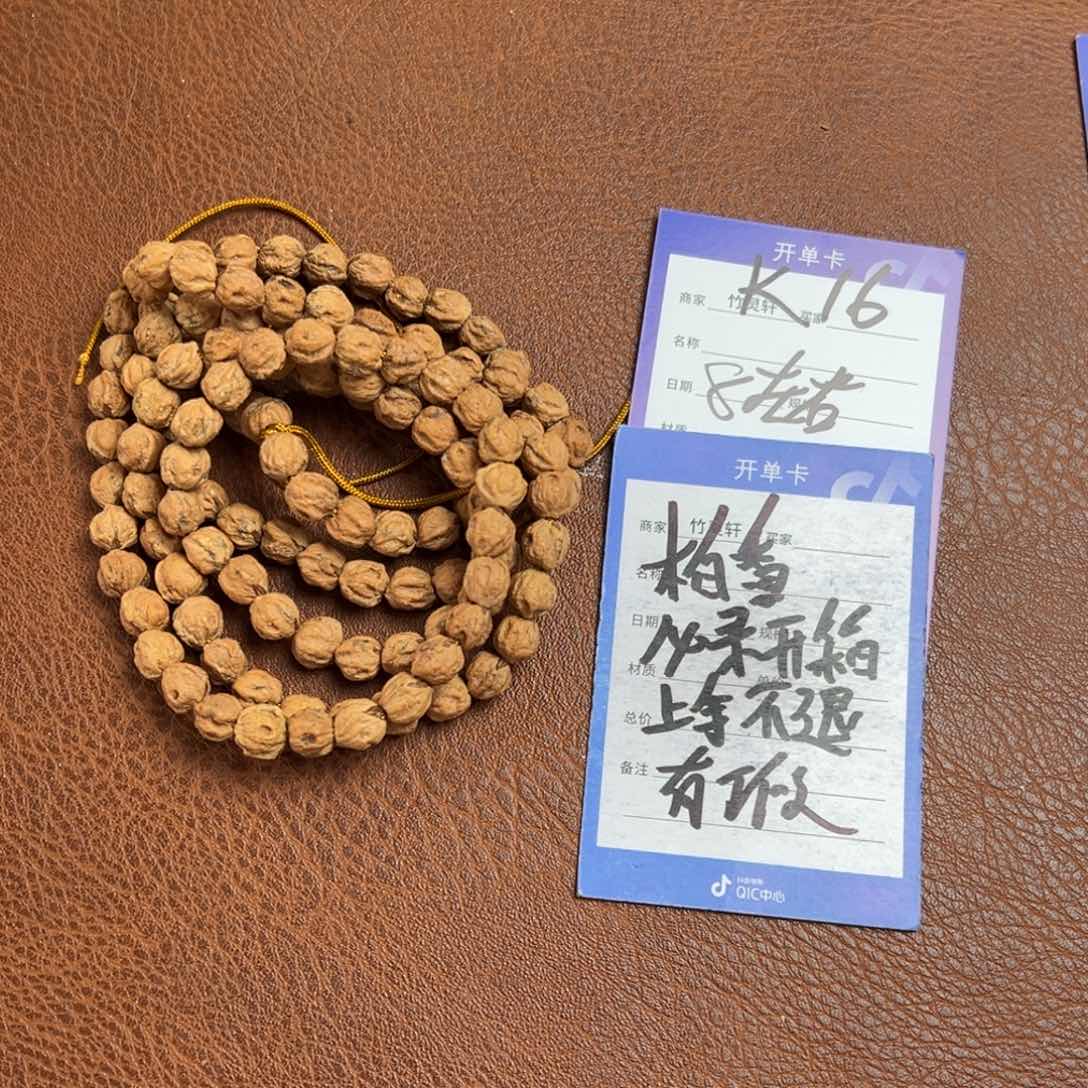 开单卡
商家 竹灵轩 买家
K16
名称
日期 规格
8左右
材质
开单卡
商家 竹灵轩 买家
名称
日期 规格
必录开箱
材质 单价
上手不退
总价
有瑕
备注
抖音电商
QIC中心